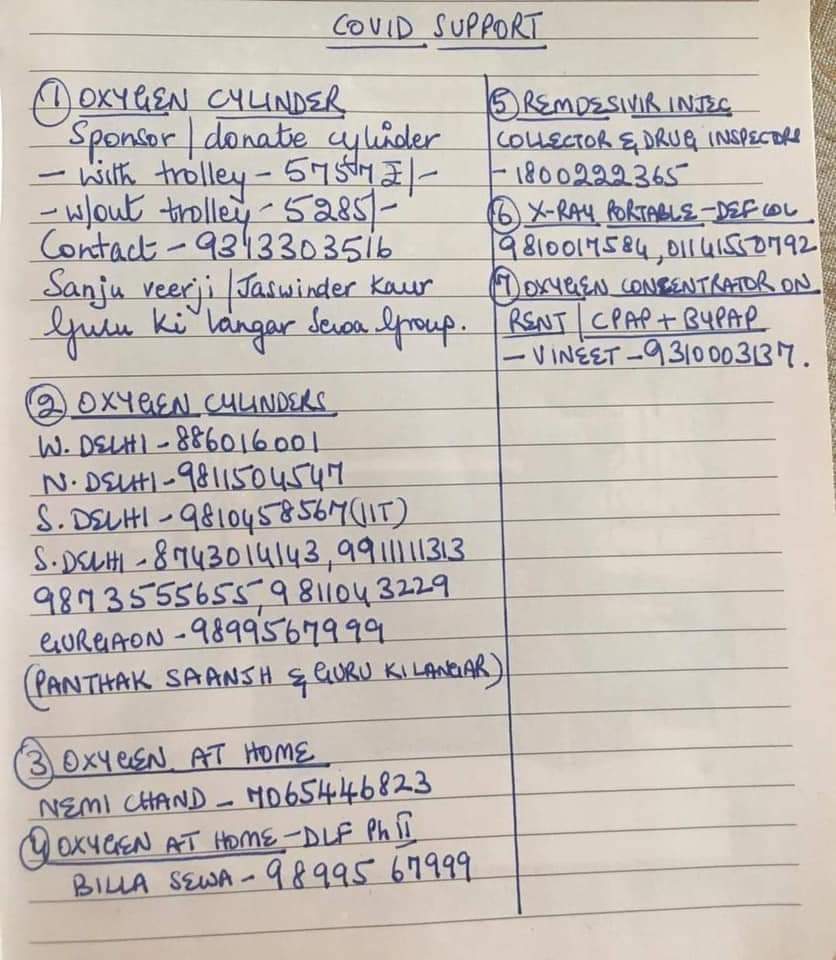 COVID SUPPORT
① OXYGEN CYLINDER
Sponsor / donate cylinder
- with trolley - 5757 ₹/-
- w/out trolley - 5285/-
Contact - 9313303516
Sanju veerji / Jaswinder Kaur
Guru Ki Langar Sewa Group.
② OXYGEN CYLINDERS
W. DELHI - 886016001
N. DELHI - 9811504547
S. DELHI - 9810458567 (IIT)
S. DELHI - 8743014143, 9911111313
9873555655, 9811043229
GURGAON - 9899567999
(PANTHAK SAANJH & GURU KI LANGAR)
③ OXYGEN AT HOME
NEMI CHAND - 7065446823
④ OXYGEN AT HOME - DLF Ph II
BILLA SEWA - 98995 67999
⑤ REMDESIVIR INJEC
COLLECTOR & DRUG INSPECTORS
- 1800222365
⑥ X-RAY PORTABLE - DEF COL
9810017584, 01141550792
⑦ OXYGEN CONCENTRATOR ON
RENT / CPAP + BYPAP
- VINEET - 9310003137.